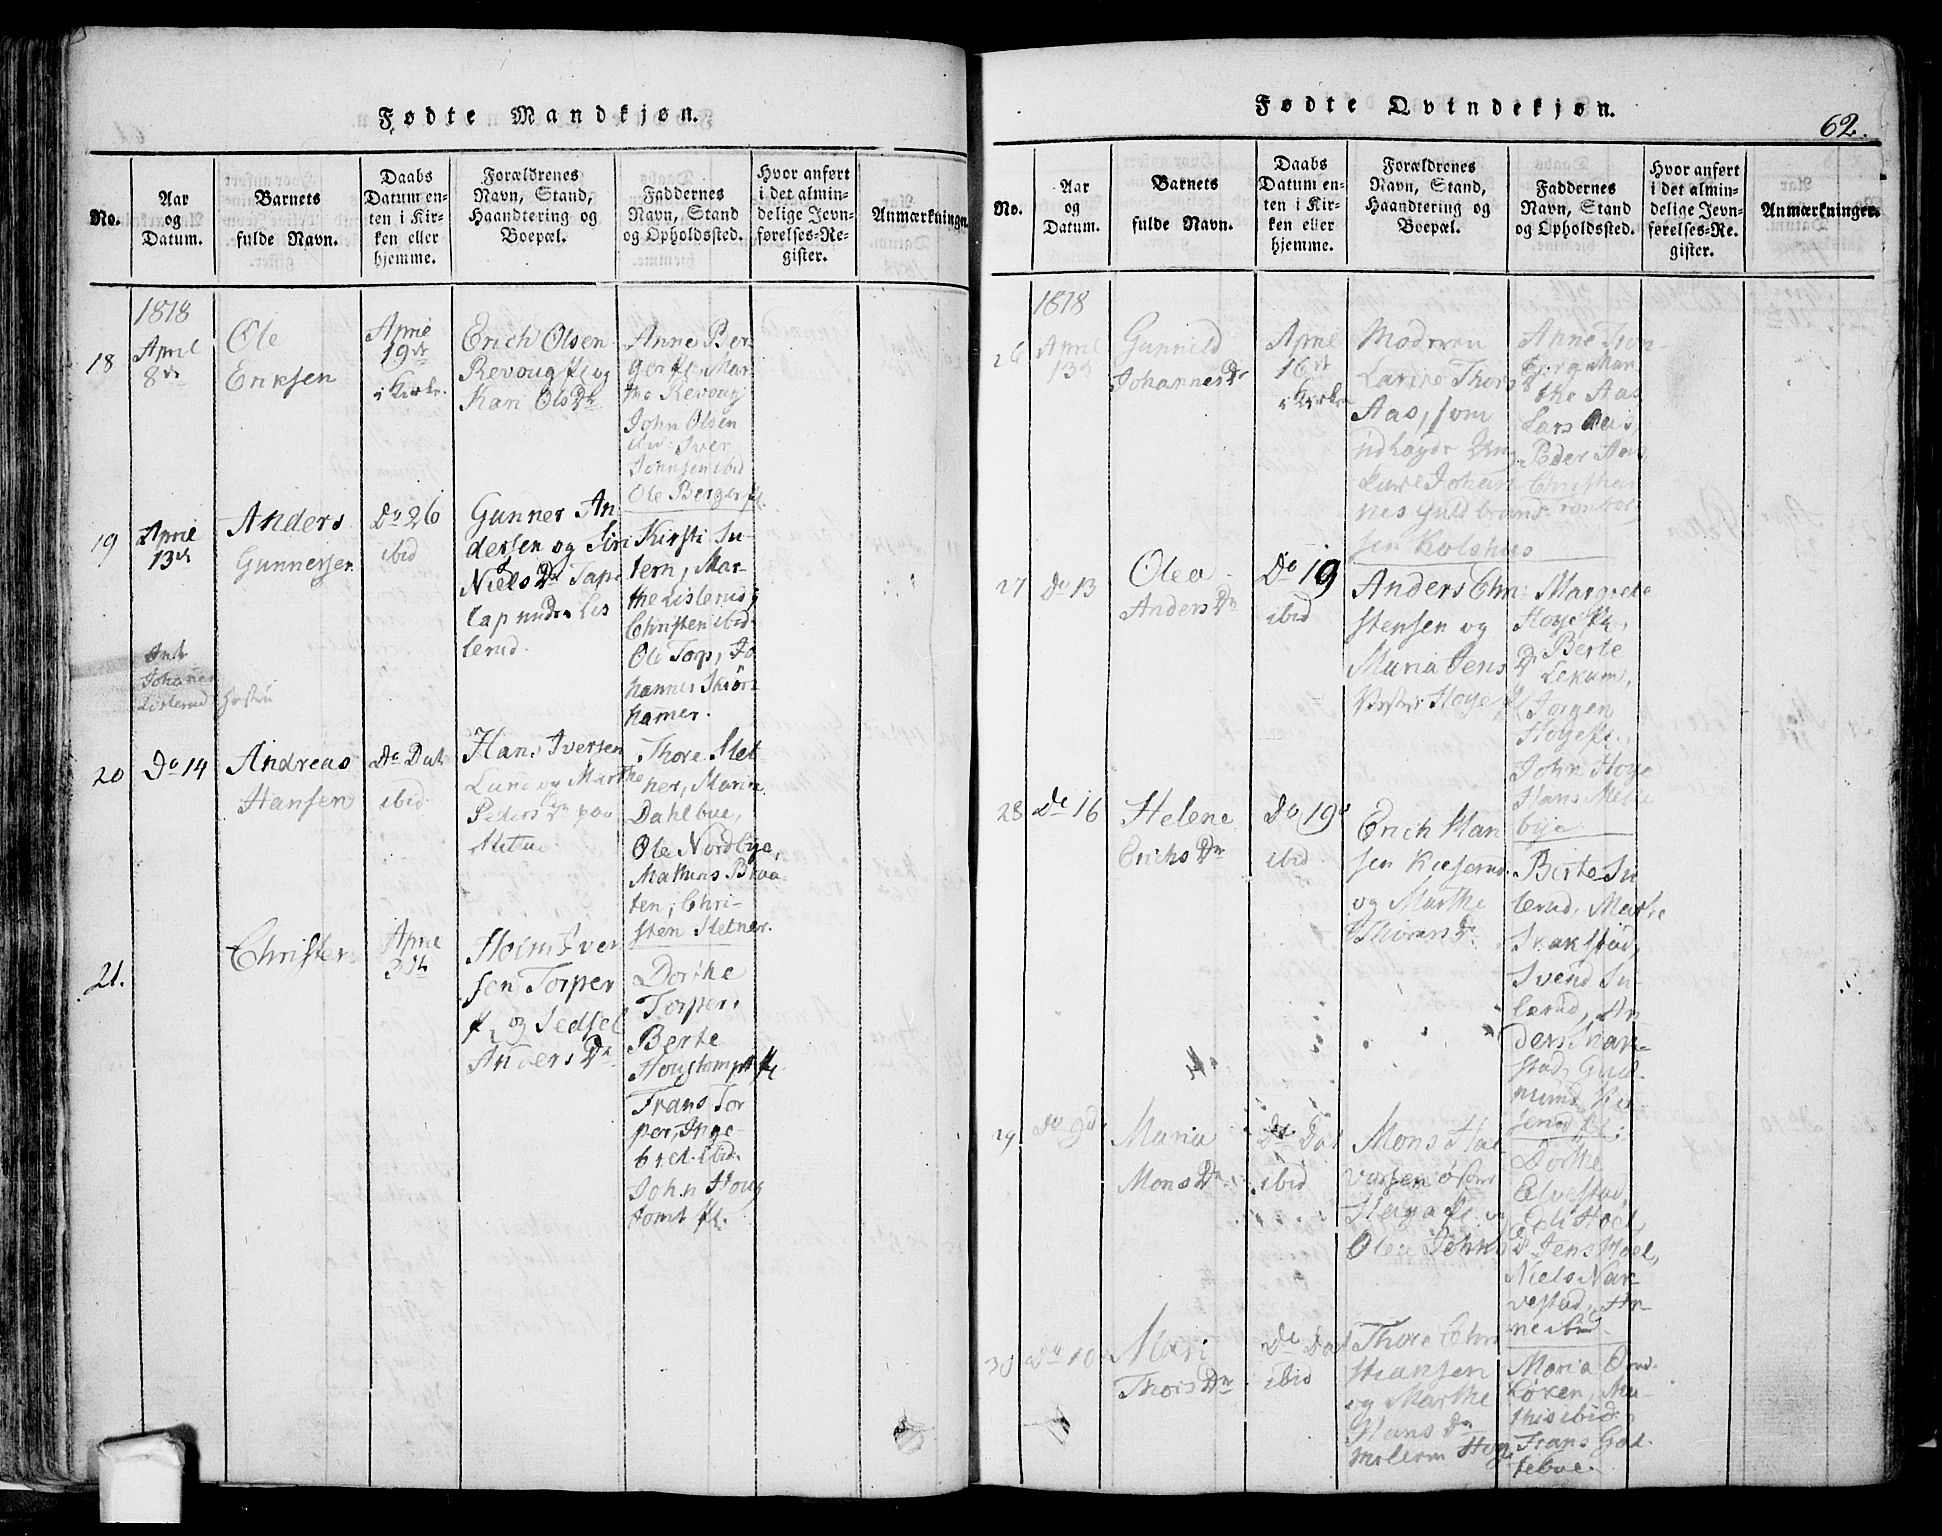 Fødte Mandkjøn.
No.
Aar
og
Datum.
Barnets
fulde Navn.
Daabs
Datum en-
ten i Kir-
ken eller
hjemme.
Forældrenes
Navn, Stand,
Haandtering og
Boepæl.
Faddernes
Navn, Stand
og Opholdssted.
Hvor anført
i det almin-
delige Jevn-
førelses-Re-
gister.
Anmærkninge
1818
18
April
8de
Ole
Eriksen
April
19de
i Kirk.
Erich Olsen
Revoug fl og
Kari OlsDr
Anne Ber-
ger fl, Mar-
the Revoug
John Olsen
ibid Iver
Johnsen ibid
Ole Berger fl.
19
April
13de
Anders
Gunnersen
Do 26
ibid
Gunner An
dersen og Siri
Niels Dr
Lis
lerud.
Kirsti Su-
lern, Mar-
the Lislerud,
Christen ibid
Ole Torp, Jo
hannes Skiør-
hamer.
Johannes
Lislerud
20
Do 14
Andreas
Hansen
Do Dat
ibid.
Hans Iversen
Lund og Marthe
Peders Dr paa
Stetne
Thore Stet
ner, Maria
Dahlbye,
Ole Nordbye,
Mathias Braa-
ten, Chri-
sten Stetner.
21.
Christen
April
Holm Iver
sen Torper
fl og Sedsel
Anders Dr
Dorthe
Torper,
Berte
Hougtomt fl
Frans Tor
per, Inge-
bret ibid.
John Houg
tomt fl.
Fødte Qvindekjøn.
62.
No.
Aar
og
Datum.
Barnets
fulde Navn.
Daabs
Datum en-
ten i Kir-
ken eller
hjemme.
Forældrenes
Navn, Stand,
Haandtering og
Boepæl.
Faddernes
Navn, Stand
og Opholdssted.
Hvor anført
i det almin-
delige Jevn-
førelses-Re-
gister.
Anmærkninger.
1818
26
April
13de
Gunnild
Johannes Dr
April
16de
i Kirke
Moderen
Larine Thors Dr
Aas, som
udlagde Ung
karl Johan
nes Guldbrand
sen Kolshus
Anne Tron-
Mar
the Aas
Lars Aas,
Peder Aas
Christian
Tronbol
27
Do 13
Olea
Anders Dr
Do 19
ibid
Anders Chri
stensen og
Maria Jens Dr
Vester Hoye fl
Margrete
Hoye fl,
Berte
Lekum,
Jorgen
Hoye fl,
John Hoye
Hans Melle
bye
28
Do 16
Helene
Erichs Dr
Do 19
ibid
Erich Han
sen Kieserud
og Marthe
Thores Dr
Berte Su
lerud, Marthe
Skakstad,
Svend Su-
lerud, An
ders Skak-
stad, Gud
mund Ki-
serud fl.
29
Do 9de
Maria
Mons Dr
Do Dat
ibid
Mons Hal
vorsen
Haga fl
Olea Johns Dr
Dorthe
Elvestad,
Edli Hoel,
Jens Hoel,
Niels Nar-
vestad, An
ne ibid
30
Do 10
Mari
Thors Dr
Do Dat
ibid
Thore Chri
stiansen
og Marthe
Hans Dr
Maria
Løken, Ma-
this ibid
Frans Gal-
tebye.